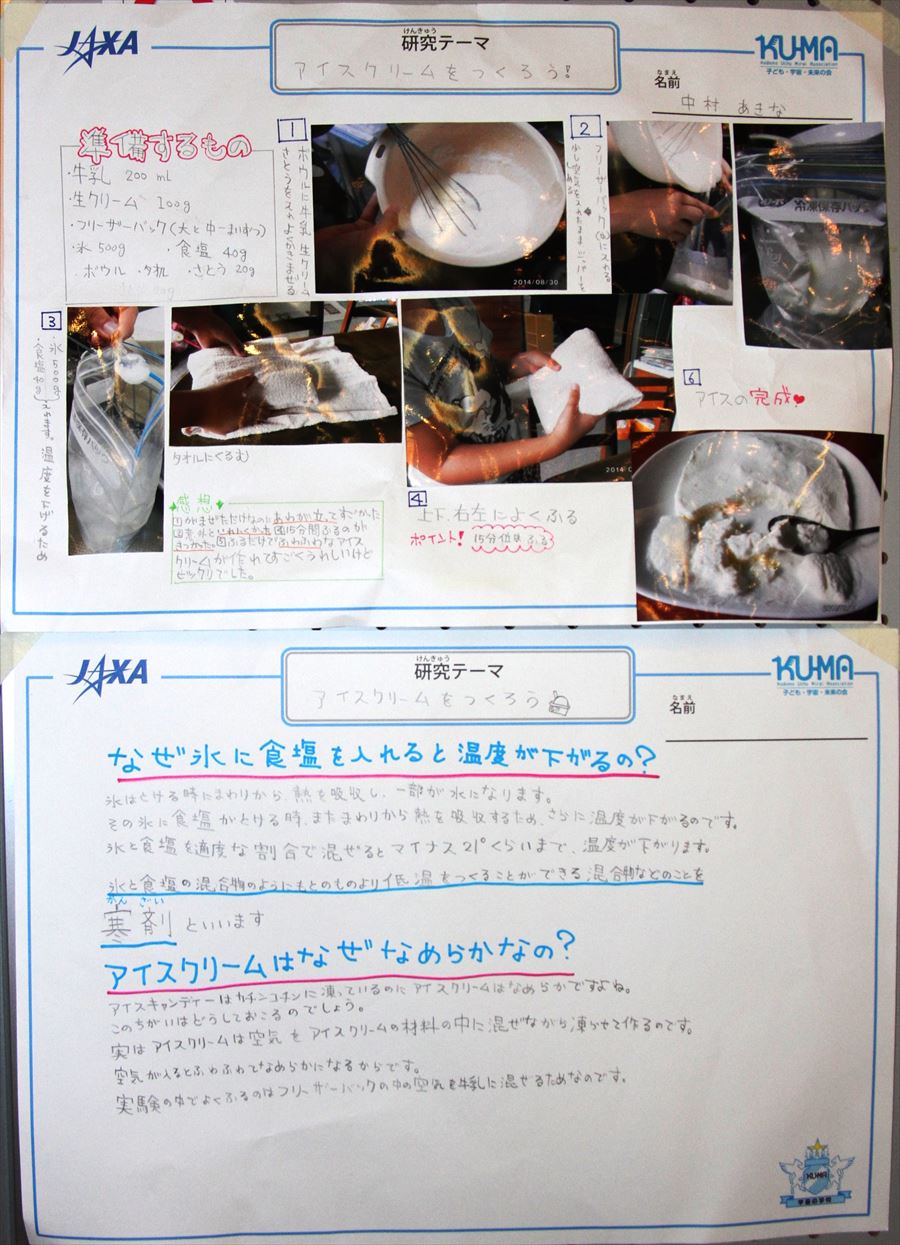 JAXA
けんきゅう
研究テーマ
アイスクリームをつくろう!
KUMA
Kodomo Uchu Mirai Association
子ども・宇宙・未来の会
なまえ
名前
中村 あきな
準備するもの
・牛乳 200 mL
・生クリーム 100g
・フリーザーバック(大と中一まいずつ)
・氷 500g ・食塩 40g
・ボウル ・タオル ・さとう 20g
1
ボウルに牛乳 生クリーム
さとうを入れよくかきまぜる
2014/08/30
2
フリーザーバック(中)に入れる
少し空気を入れたまま ジッパーを
しめる
冷凍保存バッグ
3
・氷 500g
・食塩40g 入れます。温度を下げるため
タオルにくるむ
2014
4
上下、右左によくふる
ポイント! 15分位はふる
6
アイスの完成
感想
1がまぜただけなのにあわが立ってすごかった
意外といれにくかった 15分間ふるのが
きつかった。ふるだけでふわふわなアイス
クリームが作れてすごくうれしいけど
ビックリでした。
JAXA
けんきゅう
研究テーマ
アイスクリームをつくろう
KUMA
Kodomo Uchu Mirai Association
子ども・宇宙・未来の会
なまえ
名前
なぜ氷に食塩を入れると温度が下がるの?
氷はとける時にまわりから、熱を吸収し、一部が水になります。
その氷に食塩がとける時、またまわりから熱を吸収するため、さらに温度が下がるのです。
氷と食塩を適度な割合で混ぜるとマイナス21°くらいまで、温度が下がります。
氷と食塩の混合物のようにもとのものより低温をつくることができる混合物などのことを
かんざい
寒剤といいます
アイスクリームはなぜなめらかなの?
アイスキャンディーはカチンコチンに凍っているのにアイスクリームはなめらかですよね。
このちがいはどうしておこるのでしょう。
実はアイスクリームは空気をアイスクリームの材料の中に混ぜながら凍らせて作るのです。
空気が入るとふわふわでなめらかになるからです。
実験の中でよくふるのはフリーザーバックの中の空気を牛乳に混ぜるためなのです。
KUMA
宇宙の学校